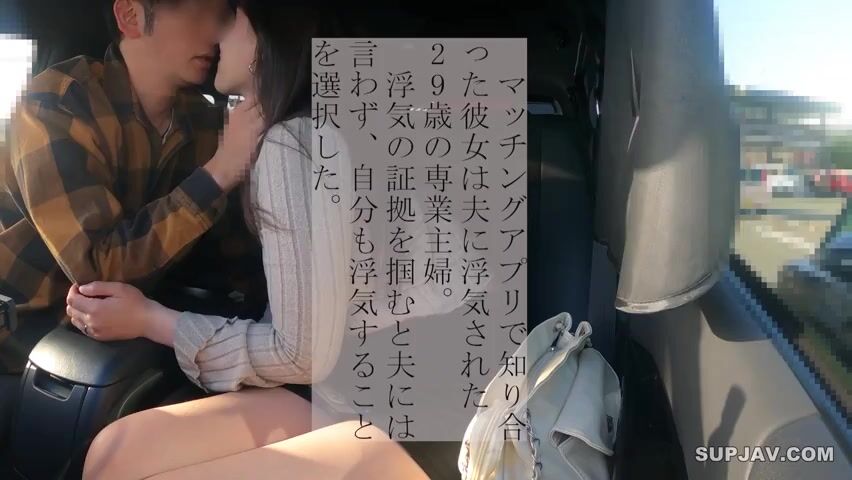 マッチングアプリで知り合
った彼女は夫に浮気された
29歳の専業主婦。
浮気の証拠を掴むと夫には
言わず、自分も浮気すること
を選択した。
SUPJAV.COM